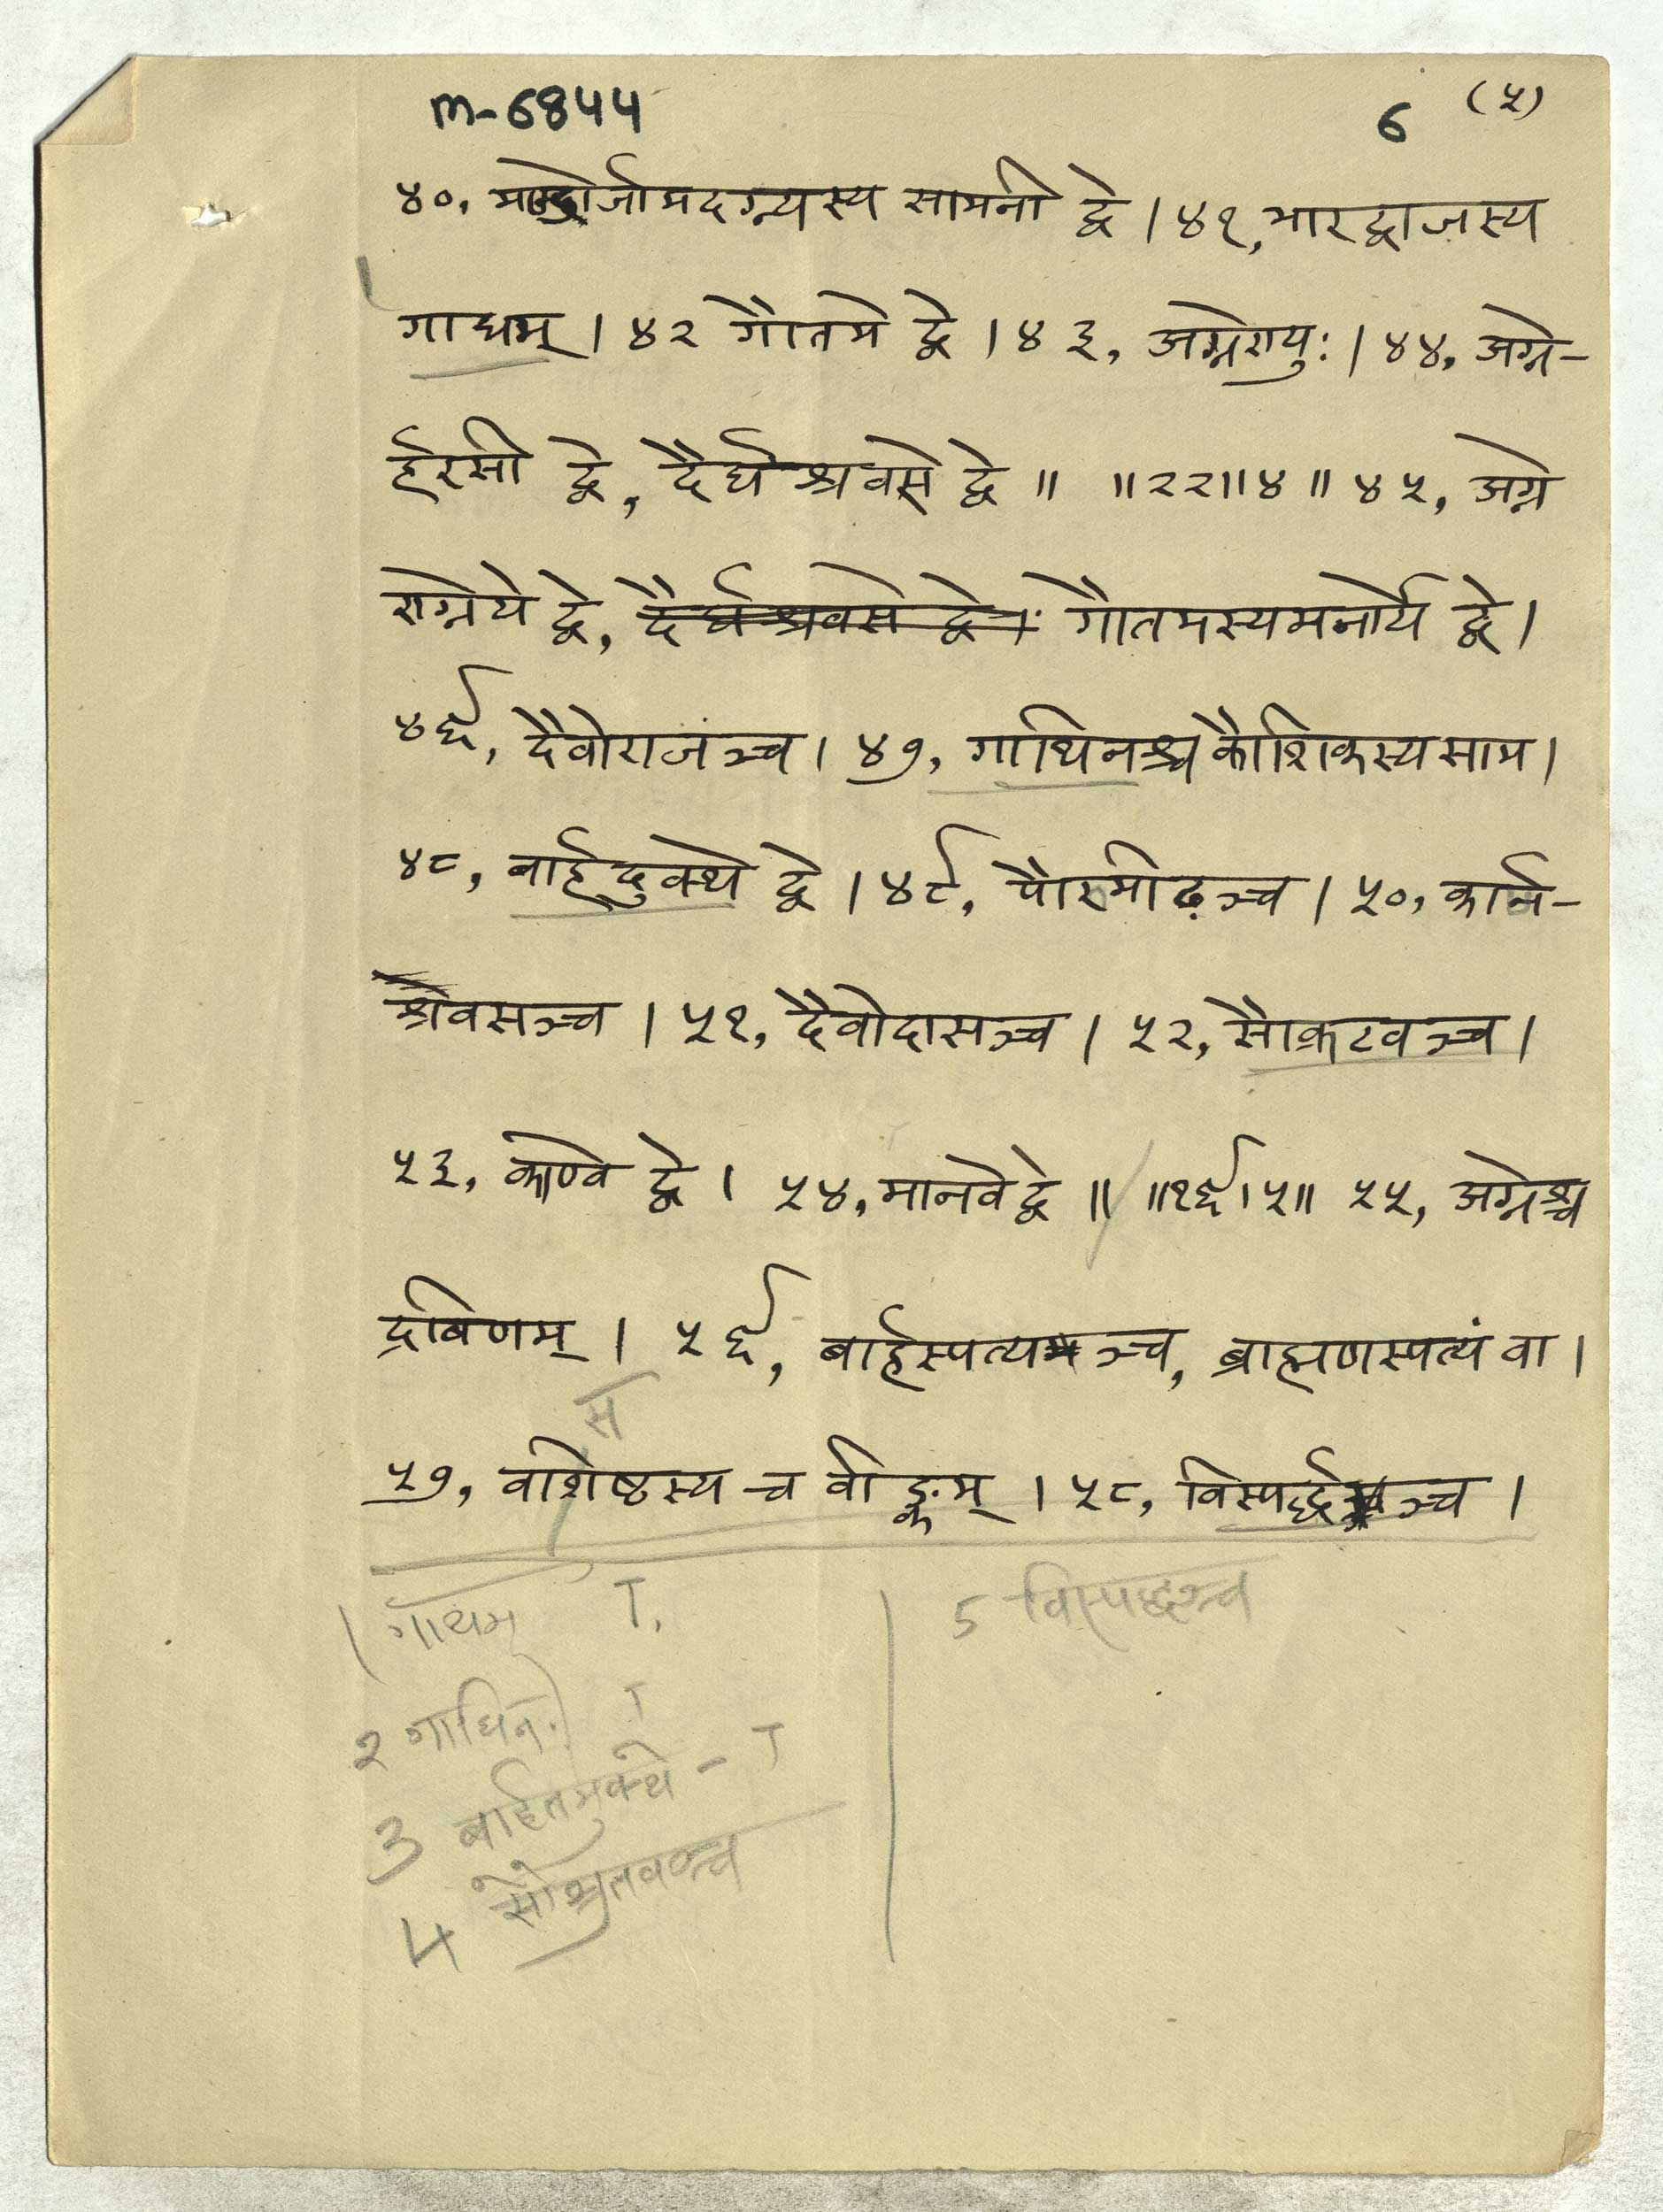 m-6844
6 (५)
४०, जामदग्न्यस्य सामनी द्वे । ४१, भारद्वाजस्य
गाधम् । ४२ गौतमे द्वे । ४३, अग्नेरायुः । ४४, अग्ने-
र्हरसी द्वे, दैर्घश्रवसे द्वे ॥ ॥२२॥४॥ ४५, अग्ने
राग्नेये द्वे, दैर्घश्रवसे द्वे । गौतमस्यमनार्ये द्वे ।
४६, दैवोराजञ्च । ४७, गाथिनश्च कौशिकस्य साम ।
४८, बार्हदुक्थे द्वे । ४९, पौरुमीढ़ञ्च । ५०, कार्न-
श्रवसञ्च । ५१, दैवोदासञ्च । ५२, सौक्रटवञ्च ।
५३, काण्वे द्वे । ५४, मानवे द्वे ॥ ॥१६।५॥ ५५, अग्नेश्च
द्रविणम् । ५६, बार्हस्पत्यञ्च, ब्राह्मणस्पत्यं वा ।
स
५७, वाशिष्ठस्य च वीङ्कम् । ५८, विस्पर्द्धञ्च ।
। गाथम् T.
२ गाथिन. T
3 बार्हतमुक्थे - T
4 सौश्रुतवञ्च
5 विस्पर्द्धञ्च